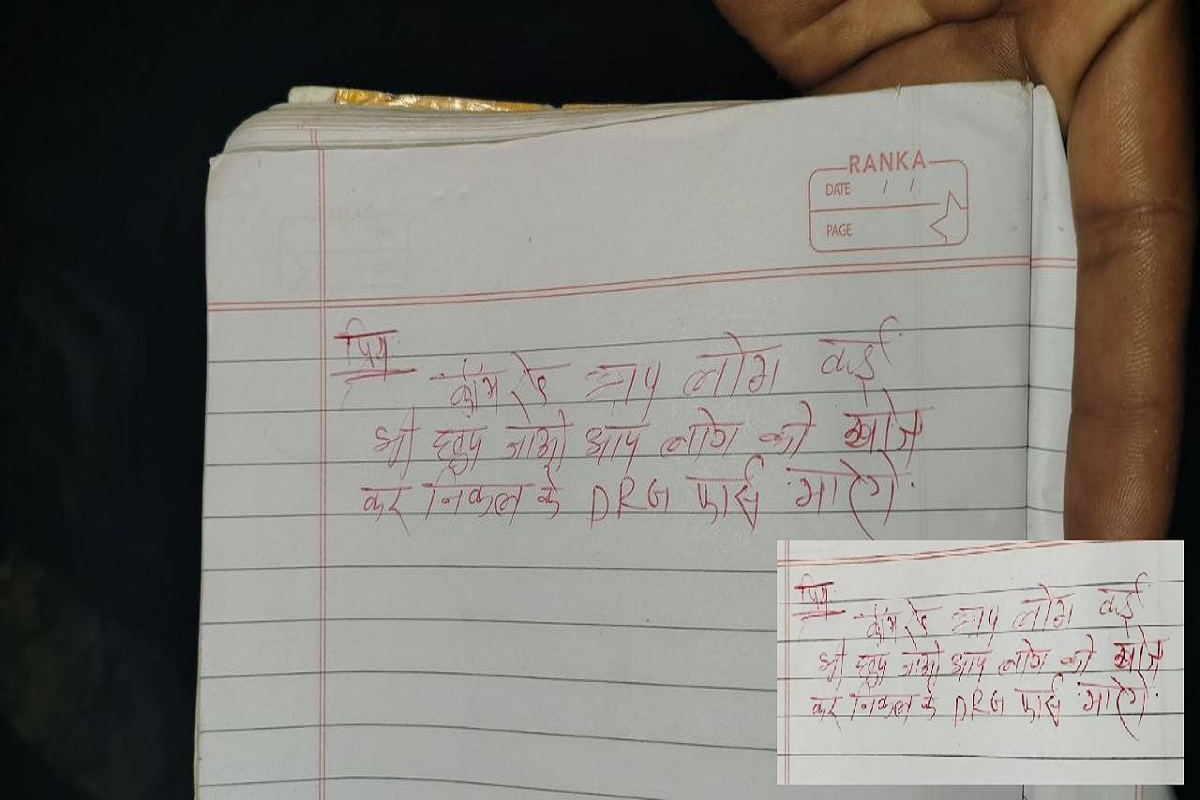 RANKA
DATE / /
PAGE
प्रिय
कॉमरेड आप लोग कई
भी छुप जाओ आप लोग को खोज
कर निकल के DRG फाई मारेगे
प्रिय
कॉमरेड आप लोग कई
भी छुप जाओ आप लोग को खोज
कर निकल के DRG फाई मारेगे